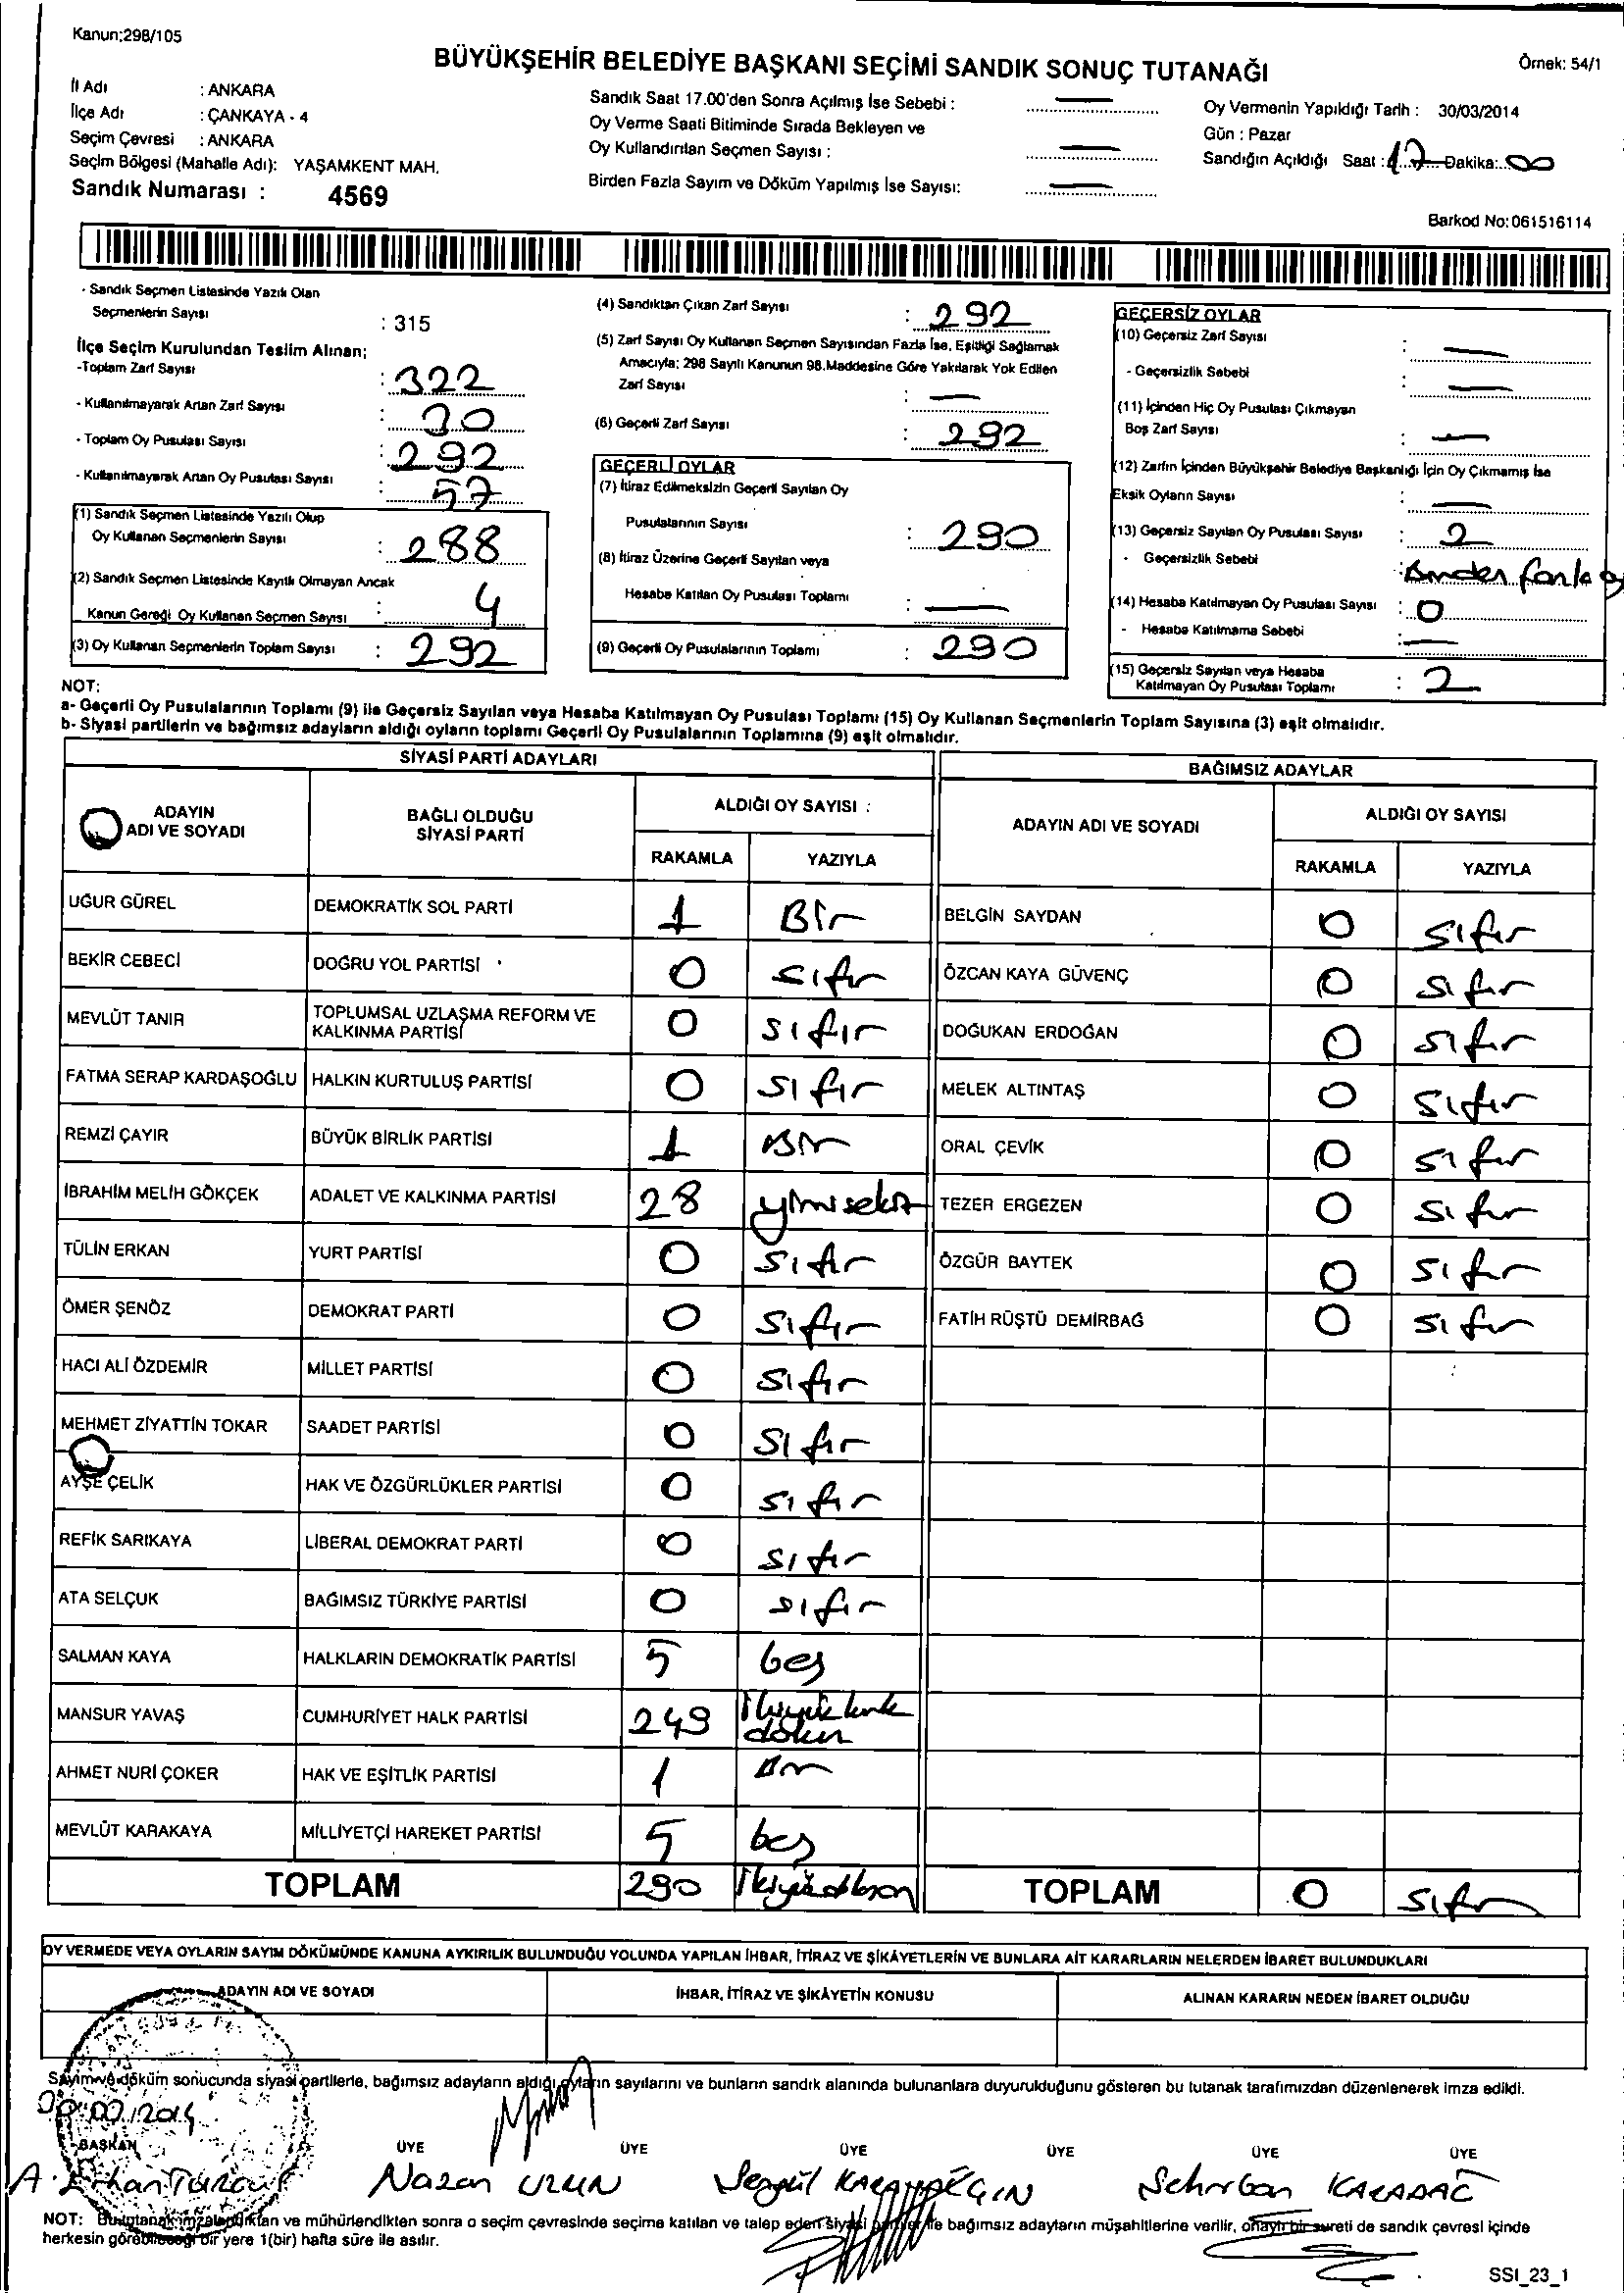 Kanun:298/105
BÜYÜKŞEHİR BELEDİYE BAŞKANI SEÇİMİ SANDIK SONUÇ TUTANAĞI
Örnek: 54/1
İl Adı : ANKARA
İlçe Adı : ÇANKAYA - 4
Seçim Çevresi : ANKARA
Seçim Bölgesi (Mahalle Adı): YAŞAMKENT MAH.
Sandık Numarası : 4569
Sandık Saat 17.00'den Sonra Açılmış İse Sebebi : —
Oy Verme Saati Bitiminde Sırada Bekleyen ve
Oy Kullandırılan Seçmen Sayısı : —
Birden Fazla Sayım ve Döküm Yapılmış İse Sayısı: —
Oy Vermenin Yapıldığı Tarih : 30/03/2014
Gün : Pazar
Sandığın Açıldığı Saat : 17 Dakika: 00
Barkod No: 061516114
- Sandık Seçmen Listesinde Yazılı Olan
Seçmenlerin Sayısı : 315
İlçe Seçim Kurulundan Teslim Alınan;
-Toplam Zarf Sayısı : 322
- Kullanılmayarak Artan Zarf Sayısı : 30
- Toplam Oy Pusulası Sayısı : 292
- Kullanılmayarak Artan Oy Pusulası Sayısı : 57
(1) Sandık Seçmen Listesinde Yazılı Olup
Oy Kullanan Seçmenlerin Sayısı : 288
(2) Sandık Seçmen Listesinde Kayıtlı Olmayan Ancak
Kanun Gereği Oy Kullanan Seçmen Sayısı : 4
(3) Oy Kullanan Seçmenlerin Toplam Sayısı : 292
(4) Sandıktan Çıkan Zarf Sayısı : 292
(5) Zarf Sayısı Oy Kullanan Seçmen Sayısından Fazla İse, Eşitliği Sağlamak
Amacıyla; 298 Sayılı Kanunun 98.Maddesine Göre Yakılarak Yok Edilen
Zarf Sayısı : —
(6) Geçerli Zarf Sayısı : 292
GEÇERLİ OYLAR
(7) İtiraz Edilmeksizin Geçerli Sayılan Oy
Pusulalarının Sayısı : 290
(8) İtiraz Üzerine Geçerli Sayılan veya
Hesaba Katılan Oy Pusulası Toplamı : —
(9) Geçerli Oy Pusulalarının Toplamı : 290
GEÇERSİZ OYLAR
(10) Geçersiz Zarf Sayısı : —
- Geçersizlik Sebebi : —
(11) İçinden Hiç Oy Pusulası Çıkmayan
Boş Zarf Sayısı : —
(12) Zarfın İçinden Büyükşehir Belediye Başkanlığı İçin Oy Çıkmamış İse
Eksik Oyların Sayısı : —
(13) Geçersiz Sayılan Oy Pusulası Sayısı : 2
- Geçersizlik Sebebi :
(14) Hesaba Katılmayan Oy Pusulası Sayısı : 0
- Hesaba Katılmama Sebebi : —
(15) Geçersiz Sayılan veya Hesaba
Katılmayan Oy Pusulası Toplamı : 2
NOT:
a- Geçerli Oy Pusulalarının Toplamı (9) ile Geçersiz Sayılan veya Hesaba Katılmayan Oy Pusulası Toplamı (15) Oy Kullanan Seçmenlerin Toplam Sayısına (3) eşit olmalıdır.
b- Siyasi partilerin ve bağımsız adayların aldığı oyların toplamı Geçerli Oy Pusulalarının Toplamına (9) eşit olmalıdır.
SİYASİ PARTİ ADAYLARI
ADAYIN ADI VE SOYADI BAĞLI OLDUĞU SİYASİ PARTİ ALDIĞI OY SAYISI :
RAKAMLA YAZIYLA
UĞUR GÜREL DEMOKRATİK SOL PARTİ 1 Bir
BEKİR CEBECİ DOĞRU YOL PARTİSİ 0 sıfır
MEVLÜT TANIR TOPLUMSAL UZLAŞMA REFORM VE KALKINMA PARTİSİ 0 sıfır
FATMA SERAP KARDAŞOĞLU HALKIN KURTULUŞ PARTİSİ 0 sıfır
REMZİ ÇAYIR BÜYÜK BİRLİK PARTİSİ 1 Bir
İBRAHİM MELİH GÖKÇEK ADALET VE KALKINMA PARTİSİ 28 yirmisekiz
TÜLİN ERKAN YURT PARTİSİ 0 sıfır
ÖMER ŞENÖZ DEMOKRAT PARTİ 0 sıfır
HACI ALİ ÖZDEMİR MİLLET PARTİSİ 0 sıfır
MEHMET ZİYATTİN TOKAR SAADET PARTİSİ 0 sıfır
AYŞE ÇELİK HAK VE ÖZGÜRLÜKLER PARTİSİ 0 sıfır
REFİK SARIKAYA LİBERAL DEMOKRAT PARTİ 0 sıfır
ATA SELÇUK BAĞIMSIZ TÜRKİYE PARTİSİ 0 sıfır
SALMAN KAYA HALKLARIN DEMOKRATİK PARTİSİ 5 beş
MANSUR YAVAŞ CUMHURİYET HALK PARTİSİ 249
AHMET NURİ ÇOKER HAK VE EŞİTLİK PARTİSİ 1 Bir
MEVLÜT KARAKAYA MİLLİYETÇİ HAREKET PARTİSİ 5 beş
TOPLAM 290 İkiyüzdoksan
BAĞIMSIZ ADAYLAR
ADAYIN ADI VE SOYADI ALDIĞI OY SAYISI
RAKAMLA YAZIYLA
BELGİN SAYDAN 0 sıfır
ÖZCAN KAYA GÜVENÇ 0 sıfır
DOĞUKAN ERDOĞAN 0 sıfır
MELEK ALTINTAŞ 0 sıfır
ORAL ÇEVİK 0 sıfır
TEZER ERGEZEN 0 sıfır
ÖZGÜR BAYTEK 0 sıfır
FATİH RÜŞTÜ DEMİRBAĞ 0 sıfır
TOPLAM 0 sıfır
OY VERMEDE VEYA OYLARIN SAYIM DÖKÜMÜNDE KANUNA AYKIRILIK BULUNDUĞU YOLUNDA YAPILAN İHBAR, İTİRAZ VE ŞİKÂYETLERİN VE BUNLARA AİT KARARLARIN NELERDEN İBARET BULUNDUKLARI
ADAYIN ADI VE SOYADI İHBAR, İTİRAZ VE ŞİKÂYETİN KONUSU ALINAN KARARIN NEDEN İBARET OLDUĞU
Sayım ve döküm sonucunda siyasi partilerle, bağımsız adayların aldığı oyların sayılarını ve bunların sandık alanında bulunanlara duyurulduğunu gösteren bu tutanak tarafımızdan düzenlenerek imza edildi.
BAŞKAN ÜYE ÜYE ÜYE ÜYE ÜYE ÜYE
Nazan UZUN
NOT: Bu tutanak imzalandıktan ve mühürlendikten sonra o seçim çevresinde seçime katılan ve talep eden siyasi partiler ile bağımsız adayların müşahitlerine verilir, onaylı bir sureti de sandık çevresi içinde
herkesin görebileceği bir yere 1(bir) hafta süre ile asılır.
SSI_23_1